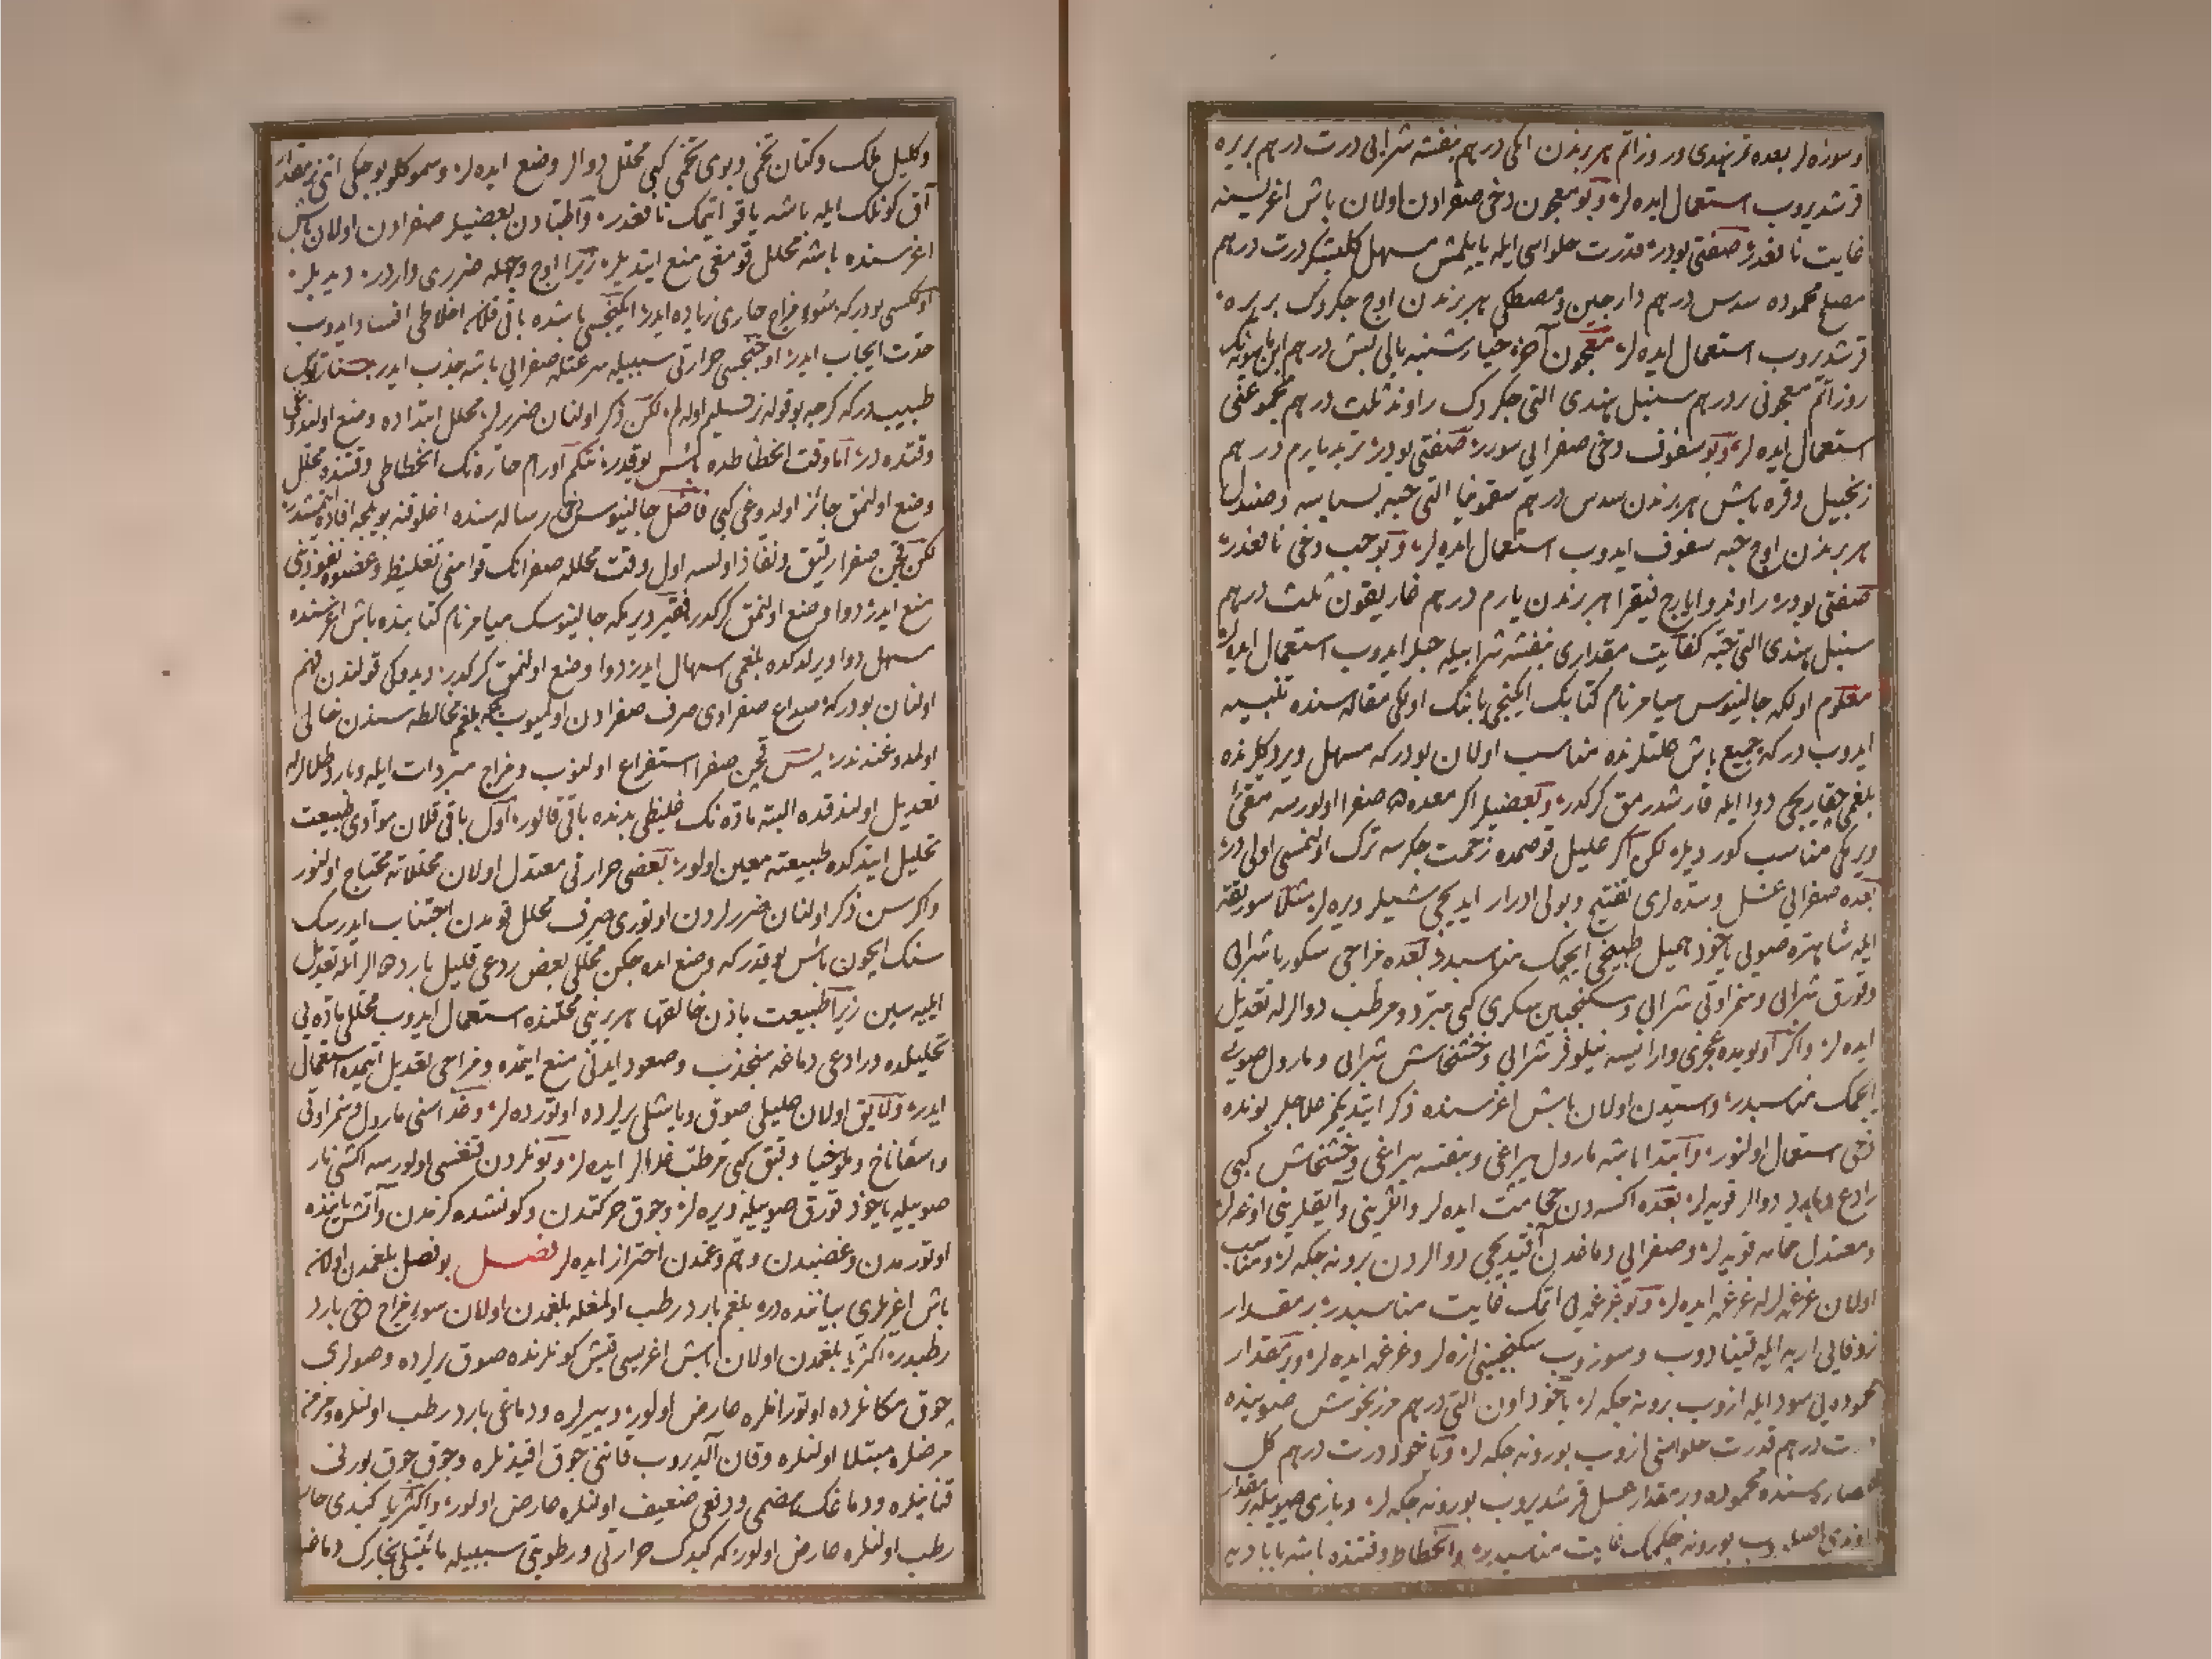 وسوزه لر بعده تمر هندی و روزاتم هر برندن ایکی درهم بنفشه شرابی درت درهم بریره
قرشدیروب استعمال ایده لر وبو معجون دخی صفرادن اولان باش اغریسینه
غایت نافعدر صفتی بودر قدرت حلواسی ایله یاپلمش مسهل کلبشکر درت درهم
مصلح محموده سدس درهم دارچین ومصطکی هر برندن اوچ چکردک بر یره
قرشدیروب استعمال ایده لر معجون آخر خیارشنبه بالی بش درهم
روزاتم معجونی بر درهم سنبل هندی التی چکردک راوند ثلث درهم مجموعنی
استعمال ایده لر وبو سفوف دخی صفرایی سورر صفتی بودر تربد یارم درهم
زنجبیل وقره باش هر برندن سدس درهم سقمونیا التی حبه بسباسه وصندل
هر برندن اوچ حبه سفوف ایدوب استعمال ایده لر وبو حب دخی نافعدر
صفتی بودر راوند وایارج فیقرا هر برندن یارم درهم غاریقون ثلث درهم
سنبل هندی التی حبه کفایت مقداری بنفشه شرابیله حبلر ایدوب استعمال ایده لر
معلوم اولکه جالینوس میامر نام کتابنک ایکنجی بابنک اولکی مقاله سنده تنبیه
ایدوب درکه جمیع باش علتلرنده مناسب اولان بودرکه مسهل ویردکلرنده
بلغمی چقاریجی دوا ایله قارشدرمق کرکدر وبعضیلر اکر معده ده صفرا اولورسه مقئ
ویرمکی مناسب کوردیلر لکن اکر علیل قوصمده زحمت چکرسه ترک اولنمسی اولی در
بعده صفرایی غسل وسده لری تفتیح وبولی ادرار ایدیجی شیلر ویره لر مثلا
ایله شاهتره صویی یاخود هلیل طبیخی ایچمک مناسبدر بعده مزاجی سکوربا شرابی
وقورق شرابی وتمر اوتی شرابی وسکنجبین سکری کبی مبرد ومرطب دوالرله تعدیل
ایده لر واکر اویومده عجزی وارایسه نیلوفر شرابی وخشخاش شرابی ومارول صویی
ایچمک مناسبدر واستیدن اولان باش اغریسنده ذکر ایتدیکمز علاجلر بونده
دخی استعمال اولنور وابتدا باشه مارول یپراغی وبنفشه یپراغی وخشخاش کبی
رادع وبارد دوالر قویه لر بعده اکسه دن حجامت ایده لر والرینی وایقلرینی اوغه لر
ومعتدل حمامه قویه لر وصفرایی دماغدن آقیدیجی دوالردن برونه چکه لر ومناسب
اولان غرغره لرله غرغره ایده لر وبو غرغره یی اتمک غایت مناسبدر بر مقدار
زوفایی اربه ایله قینادوب وسوزوب سکنجبینی ازه لر وغرغره ایده لر وبر مقدار
محموده یی سود ایله ازوب برونه چکه لر یاخود اون التی درهم مرزنجوش صویینده
درت درهم قدرت حلواسنی ازوب بورونه چکه لر ویاخود درت درهم کل
عصاره سنده محموده وبر مقدار عسل قرشدیروب بورونه چکه لر
بورونه چکمک غایت مناسبدر وانحطاط وقتنده باشه بابادیه
وکلیل ملک وکتان تخمی وبوی تخمی کبی محلل دوالر وضع ایده لر وسموکلو بوجکی اتنی بر مقدار
آق کونلک ایله باشه یاقو ایتمک نافعدر واطبادن بعضیلر صفرادن اولان باش
اغریسنده باشه محلل قومغی منع ایتدیلر زیرا اوچ وجهله ضرری واردر دیدیلر
اولکسی بودرکه سوء مزاج حاری زیاده ایدر ایکنجسی باشده باقی قلان اخلاطی افساد ایدوب
حدت ایجاب ایدر اوچنجسی حرارتی سببیله سرعتله صفرایی باشه جذب ایدر
طبیب درکه کرچه بو قوللر تسلیم اوله لر لکن ذکر اولنان ضررلر محلل ابتداده وضع اولندوغی
وقتده در اما وقت انحطاطده باس یوقدر نتکم اورام حاره نک انحطاطی وقتنده محلل
وضع اولنمق جائز اولدوغی کبی فاضل جالینوس دخی رساله سنده اغلوقنه بویلجه افاده ایتمشدر
لکن قچن صفرا رقیق ونفاذ اولسه اول وقت محلله صفرانک قوامنی تغلیظ وعضوه نفوذینی
منع ایدر دوا وضع اولنمق کرکدر فقیر دیرمکه جالینوسک میامر نام کتابنده باش اغریسنده
مسهل دوا ویرلدکده بلغمی اسهال ایدر دوا وضع اولنمق کرکدر دیدوکی قولندن فهم
اولنان بودرکه صداع صفراوی صرف صفرادن اولمیوب بلکه بلغم مخالطه سندن خالی
اولمدوغنده ندر پس قچن صفرا استفراغ اولنوب ومزاج مبردات ایله وبارد طلالرله
تعدیل اولندقده البته ماده نک غلیظی بدنده باقی قالور اول باقی قلان موادی طبیعت
تحلیل ایتدکده طبیعته معین اولور بعضی حرارتی معتدل اولان محللاته محتاج اولنور
واکر سن ذکر اولنان ضررلردن اوتوری صرف محلل قومدن اجتناب ایدرسک
سنک ایچون باس یوقدرکه وضع ایده جکن محللی بعض ردعی قلیل بارد دوالر ایله تعدیل
ایلیه سین زیرا طبیعت باذن خالقها هر برینی محلنده استعمال ایدوب محللی ماده یی
تحلیلده ورادعی دماغه منجذب وصعود ایدنی منع ایتمده ومزاجی تعدیل ایتمده استعمال
ایدر ولایق اولان علیلی صوق ویاشلی یرلرده اوتورده لر وغداسنی مارول وتمر اوتی
واسفاناخ وملوخیا وقبق کبی مرطب غدالر ایده لر وبونلردن تنغسی اولورسه اکشی نار
صوییله یاخود قورق صوییله ویره لر وچوق حرکتدن وکونشده کزمدن وآتش یاننده
اوتورمدن وغضبدن وهم وغمدن احتراز ایده لر فصل بو فصل بلغمدن اولان
باش اغریلری بیاننده در بلغم بارد رطب اولمغله بلغمدن اولان سوء مزاج دخی بارد
رطبدر اکثریا بلغمدن اولان باش اغریسی قیش کونلرنده صوق یرلرده وصولری
چوق مکانلرده اوتورانلره عارض اولور وپیرلره ودماغی بارد رطب اولنلره ومزمن
مرضلره مبتلا اولنلره وقان آلدیروب قاننی چوق اقیدنلره وچوق چوق بورنی
قنایانلره ودماغک هضمی ودفعی ضعیف اولنلره عارض اولور واکثریا کبدی حار
رطب اولنلره عارض اولورکه کبدک حرارتی ورطوبتی سببیله مائیتلی بخارک دماغه